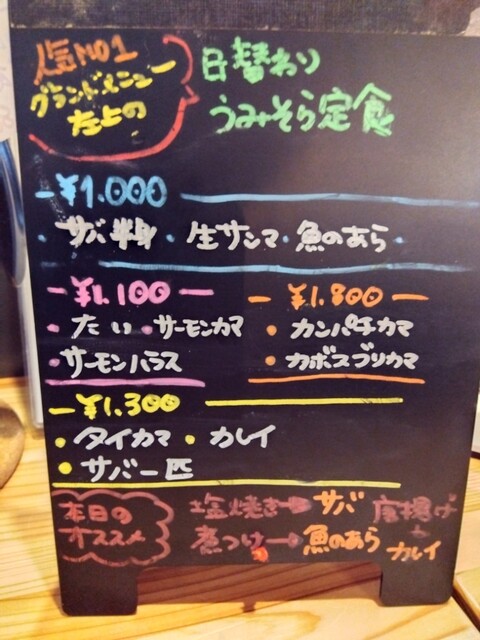 人気NO1
グランドメニュー
左上の
日替わり
うみそら定食
-¥1.000
・サバ半身・生サンマ・魚のあら・
-¥1.100-
・たい・サーモンカマ
・サーモンハラス
-¥1.800-
・カンパチカマ
・カボスブリカマ
-¥1.300
・タイカマ・カレイ
・サバ一匹
本日の
オススメ
塩焼き→サバ
煮つけ→魚のあら
唐揚げ
→
カレイ